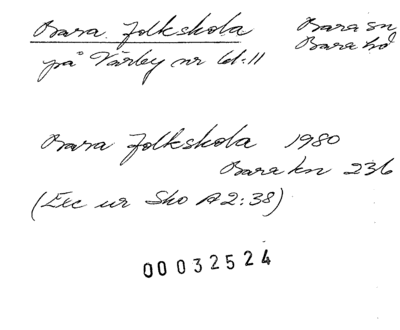 Bara folkskola Bara sn
på Värby nr 61:11 Bara hd
Bara folkskola 1980
Bara kn 236
(Exc ur Sko A2:38)
00032524